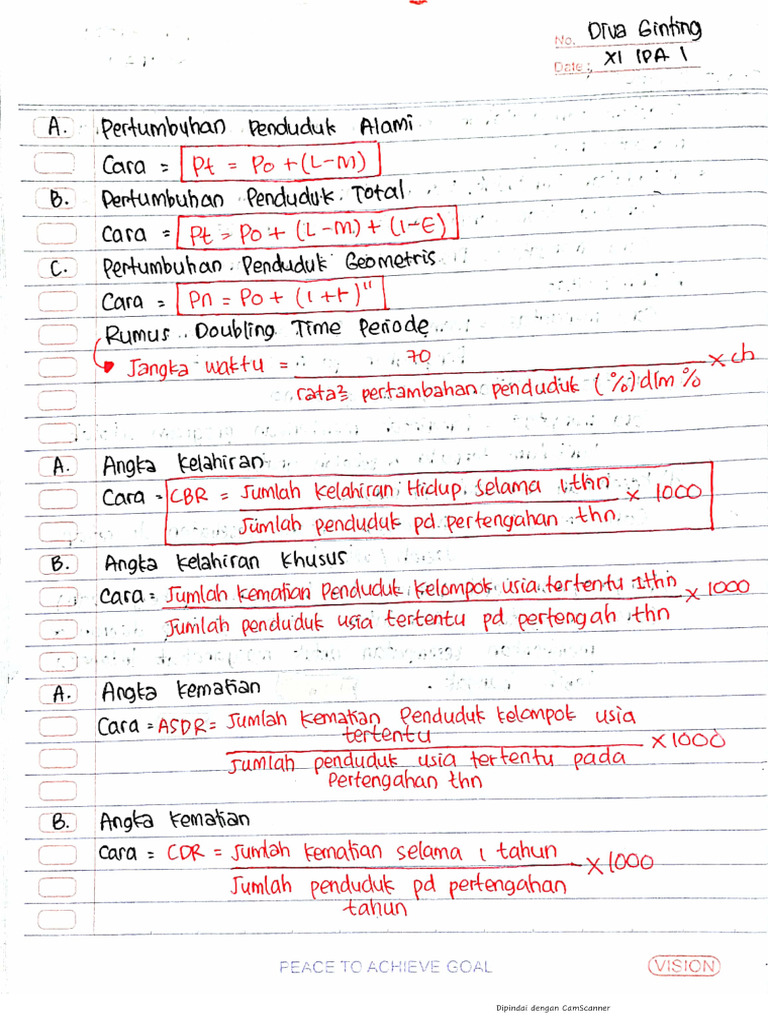 No. Diva Ginting
Date: XI IPA 1
A. Pertumbuhan Penduduk Alami
Cara = Pt = Po + (L-M)
B. Pertumbuhan Penduduk Total
Cara = Pt = Po + (L-M) + (I-E)
C. Pertumbuhan Penduduk Geometris
Cara = Pn = Po + (1+r)ⁿ
Rumus Doubling Time Periode
Jangka waktu = 70 x
rata² pertambahan penduduk (%) dlm %
A. Angka Kelahiran
Cara = CBR = Jumlah Kelahiran Hidup selama 1 thn x 1000
Jumlah penduduk pd pertengahan thn
B. Angka Kelahiran Khusus
Cara = Jumlah Kematian Penduduk Kelompok usia tertentu 1thn x 1000
Jumlah penduduk usia tertentu pd pertengah thn
A. Angka Kematian
Cara = ASDR = Jumlah Kematian Penduduk Kelompok usia
tertentu x 1000
Jumlah penduduk usia tertentu pada
Pertengahan thn
B. Angka Kematian
Cara = CDR = Jumlah Kematian selama 1 tahun x 1000
Jumlah penduduk pd pertengahan
tahun
PEACE TO ACHIEVE GOAL
VISION
Dipindai dengan CamScanner